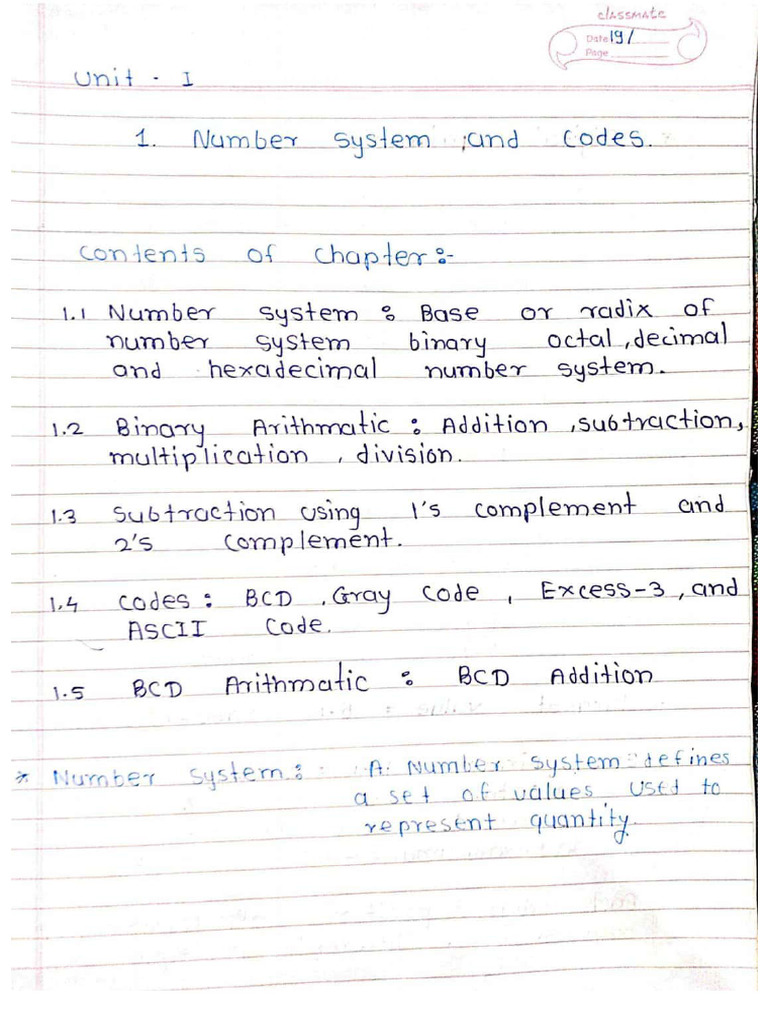 classmate
Date 19/
Page
Unit - I
1. Number system and codes.
Contents of chapter :-
1.1 Number system : Base or radix of
number system binary octal, decimal
and hexadecimal number system.
1.2 Binary Arithmatic : Addition, subtraction,
multiplication, division.
1.3 Subtraction using 1's complement and
2's complement.
1.4 codes : BCD, Gray code, Excess-3, and
ASCII Code.
1.5 BCD Arithmatic : BCD Addition
* Number system : A Number system defines
a set of values used to
represent quantity.